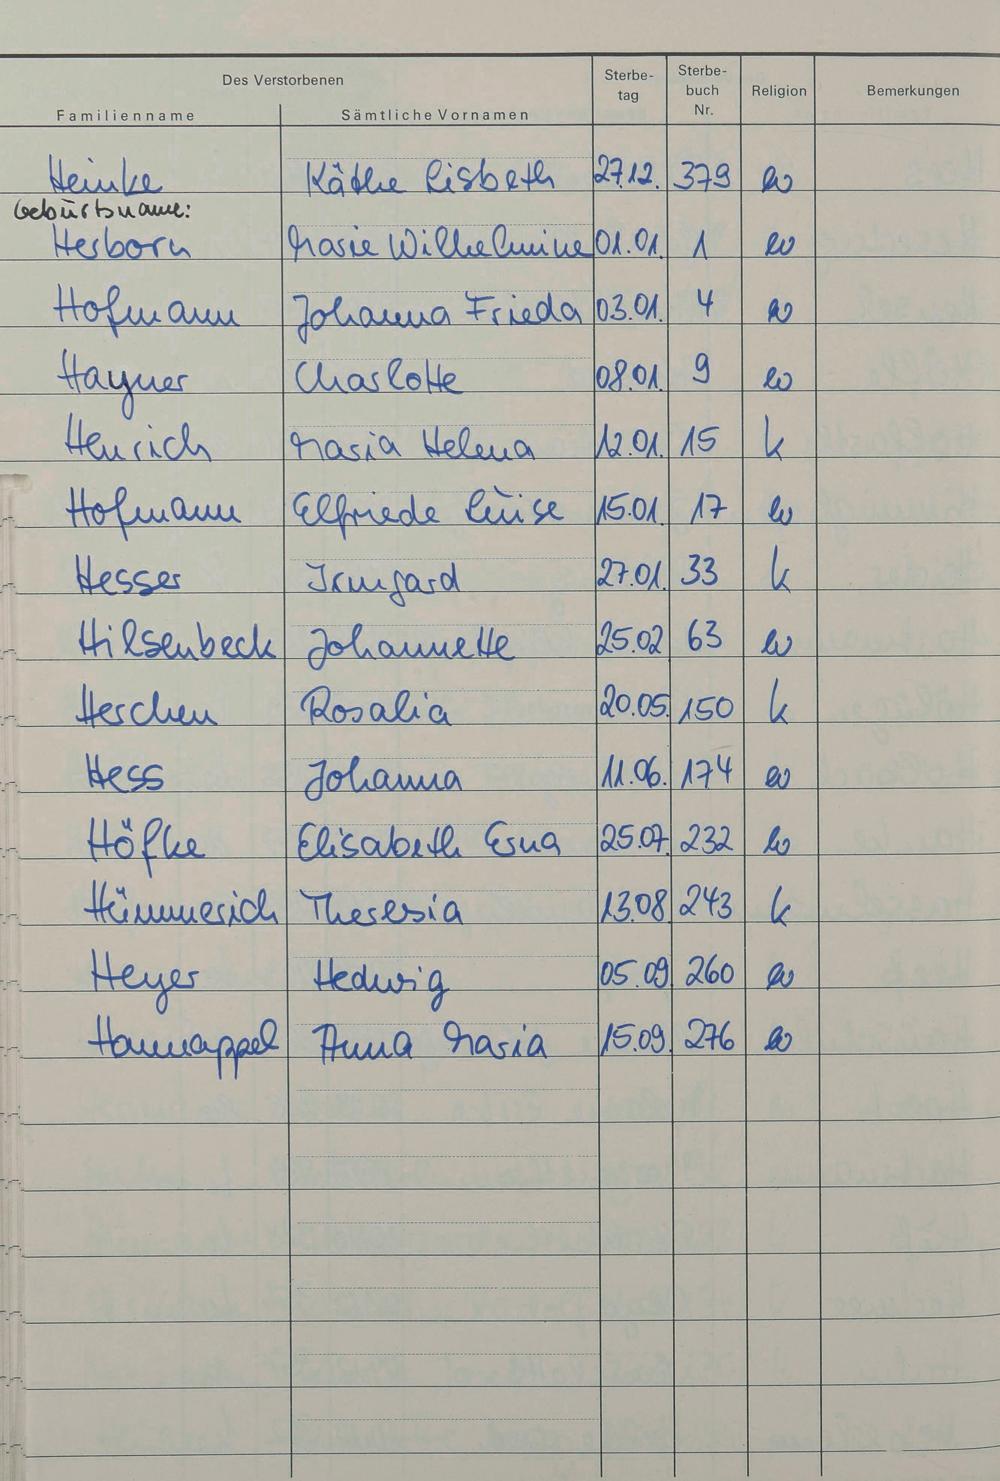 Des Verstorbenen
Sterbe-
tag
Sterbe-
buch
Nr.
Religion
Bemerkungen
Familienname
Sämtliche Vornamen
Heinke Käthe Lisbeth 27.12. 379 ev
Geburtsname:
Herborn Marie Wilhelmine 01.01. 1 ev
Hofmann Johanna Frieda 03.01. 4 ev
Hayner Charlotte 08.01. 9 ev
Henrich Maria Helena 12.01. 15 k
Hofmann Elfriede Luise 15.01. 17 ev
Hesser Irmgard 27.01. 33 k
Hilsenbeck Johannette 25.02 63 ev
Herchen Rosalia 20.05. 150 k
Hess Johanna 11.06. 174 ev
Höfke Elisabeth Erna 25.07. 232 ev
Hümmerich Theresia 13.08 243 k
Heyer Hedwig 05.09. 260 ev
Hannappel Anna Maria 15.09. 276 ev